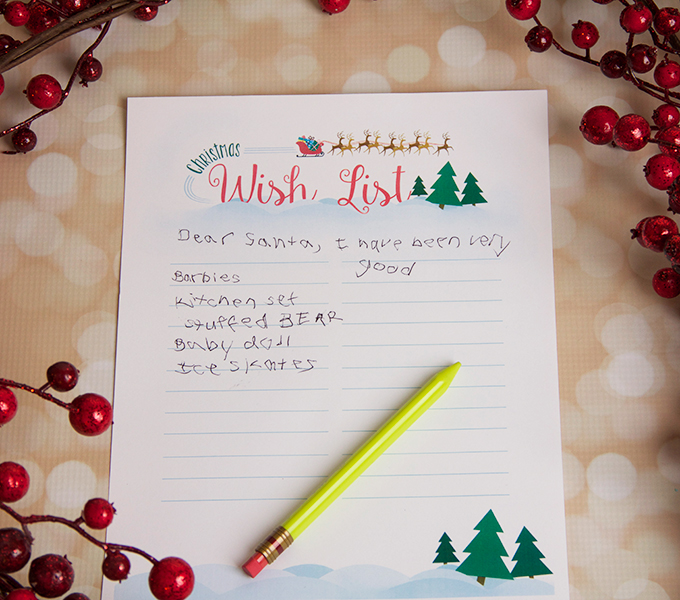 Christmas
Wish List
Dear Santa, I have been very
good
Barbies
Kitchen set
stuffed BEAR
Baby doll
Ice skates